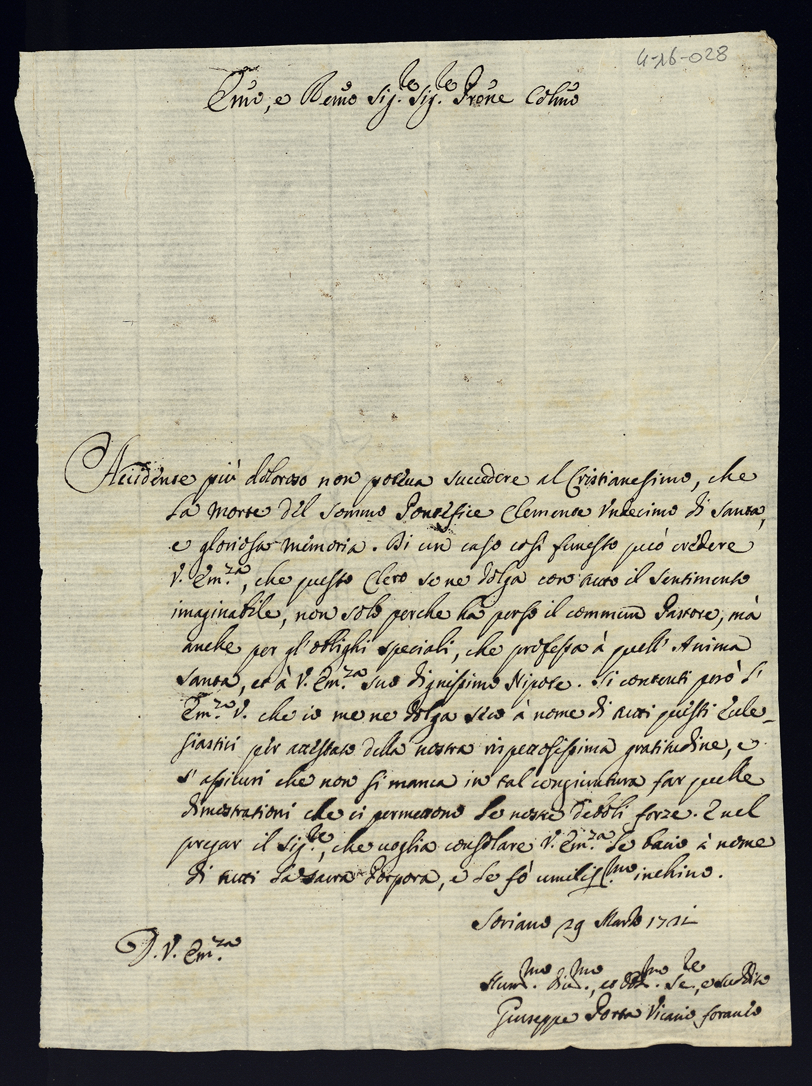 4-16-028
Emo, e Remo Sig.re Sig.re Prone Colmo
Accidente più doloroso non poteua succedere al Cristianesimo, che
la morte del sommo Pontefice Clemente Undecimo di santa,
e gloriosa memoria. Di un caso così funesto può credere
V. Em.za, che questo Clero se ne dolga con tutto il sentimento
imaginabile, non solo perche hà perso il commun Pastore, mà
anche per gl'obblighi speciali, che professa à quell'Anima
santa, et à V. Em.za suo dignissimo Nipote. Si contenti però l'
Em.za V. che io me ne dolga seco à nome di tutti questi Eccle-
siastici per attestato della nostra rispettosissima gratitudine, e
s'assicuri che non si manca in tal congiuntura far quelle
dimostrationi che ci permettono le nostre deboli forze. E nel
pregar il Sig.re, che uoglia consolare V. Em.za le bacio à nome
di tutti la sacra Porpora, e le fò umiliss.mo inchino.
Soriano 29 Marzo 1721
D. V. Em.za
Hum.mo diu.mo, et obb.mo Se.re, e suddito
Giuseppe Porta Vicario foraneo